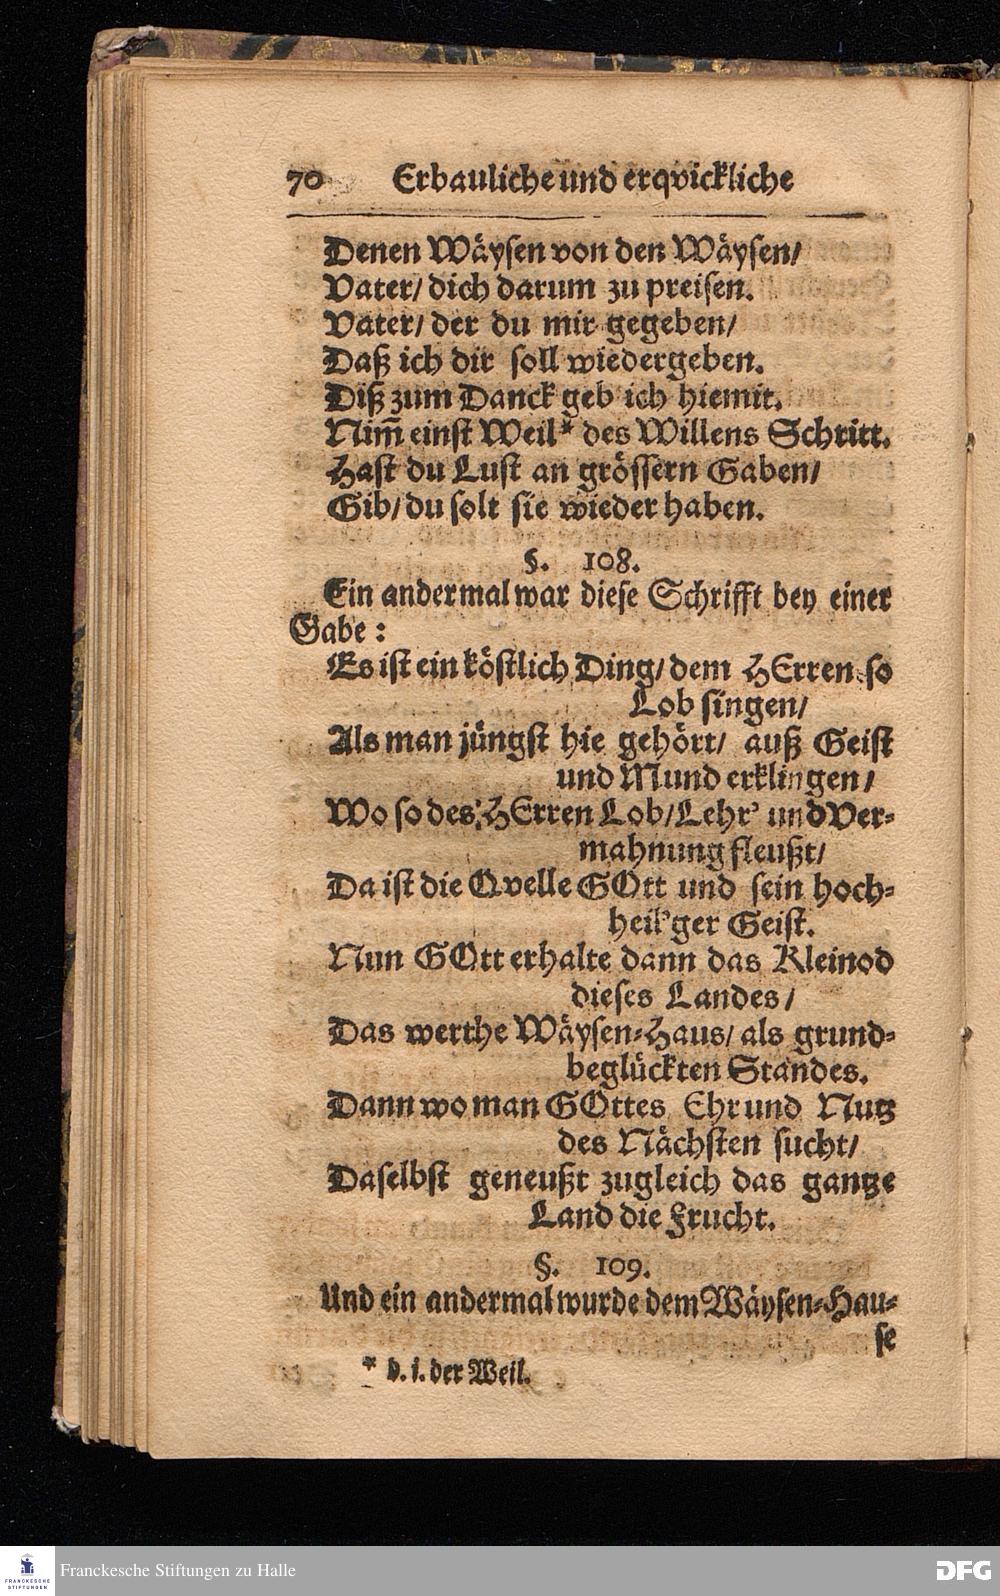 70 Erbauliche und erqvickliche
Denen Wäysen von den Wäysen/
Vater/ dich darum zu preisen.
Vater/ der du mir gegeben/
Daß ich dir soll wiedergeben.
Diß zum Danck geb ich hiemit.
Nim̃ einst Weil* des Willens Schritt.
Hast du Lust an grössern Gaben/
Gib/ du solt sie wieder haben.
§. 108.
Ein andermal war diese Schrifft bey einer
Gabe:
Es ist ein köstlich Ding/ dem HErren so
Lob singen/
Als man jüngst hie gehört/ auß Geist
und Mund erklingen/
Wo so des HErren Lob/ Lehr' und Ver-
mahnung fleußt/
Da ist die Qvelle GOtt und sein hoch-
heil'ger Geist.
Nun GOtt erhalte dann das Kleinod
dieses Landes/
Das werthe Wäysen-Haus/ als grund-
beglückten Standes.
Dann wo man GOttes Ehr und Nutz
des Nächsten sucht/
Daselbst geneußt zugleich das gantze
Land die Frucht.
§. 109.
Und ein andermal wurde dem Wäysen-Hau-
se
* d. i. der Weil.
FRANCKESCHE
STIFTUNGEN
Franckesche Stiftungen zu Halle
DFG